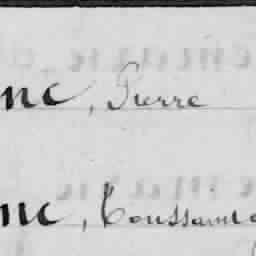 nc, Pierre
nc, Toussaint